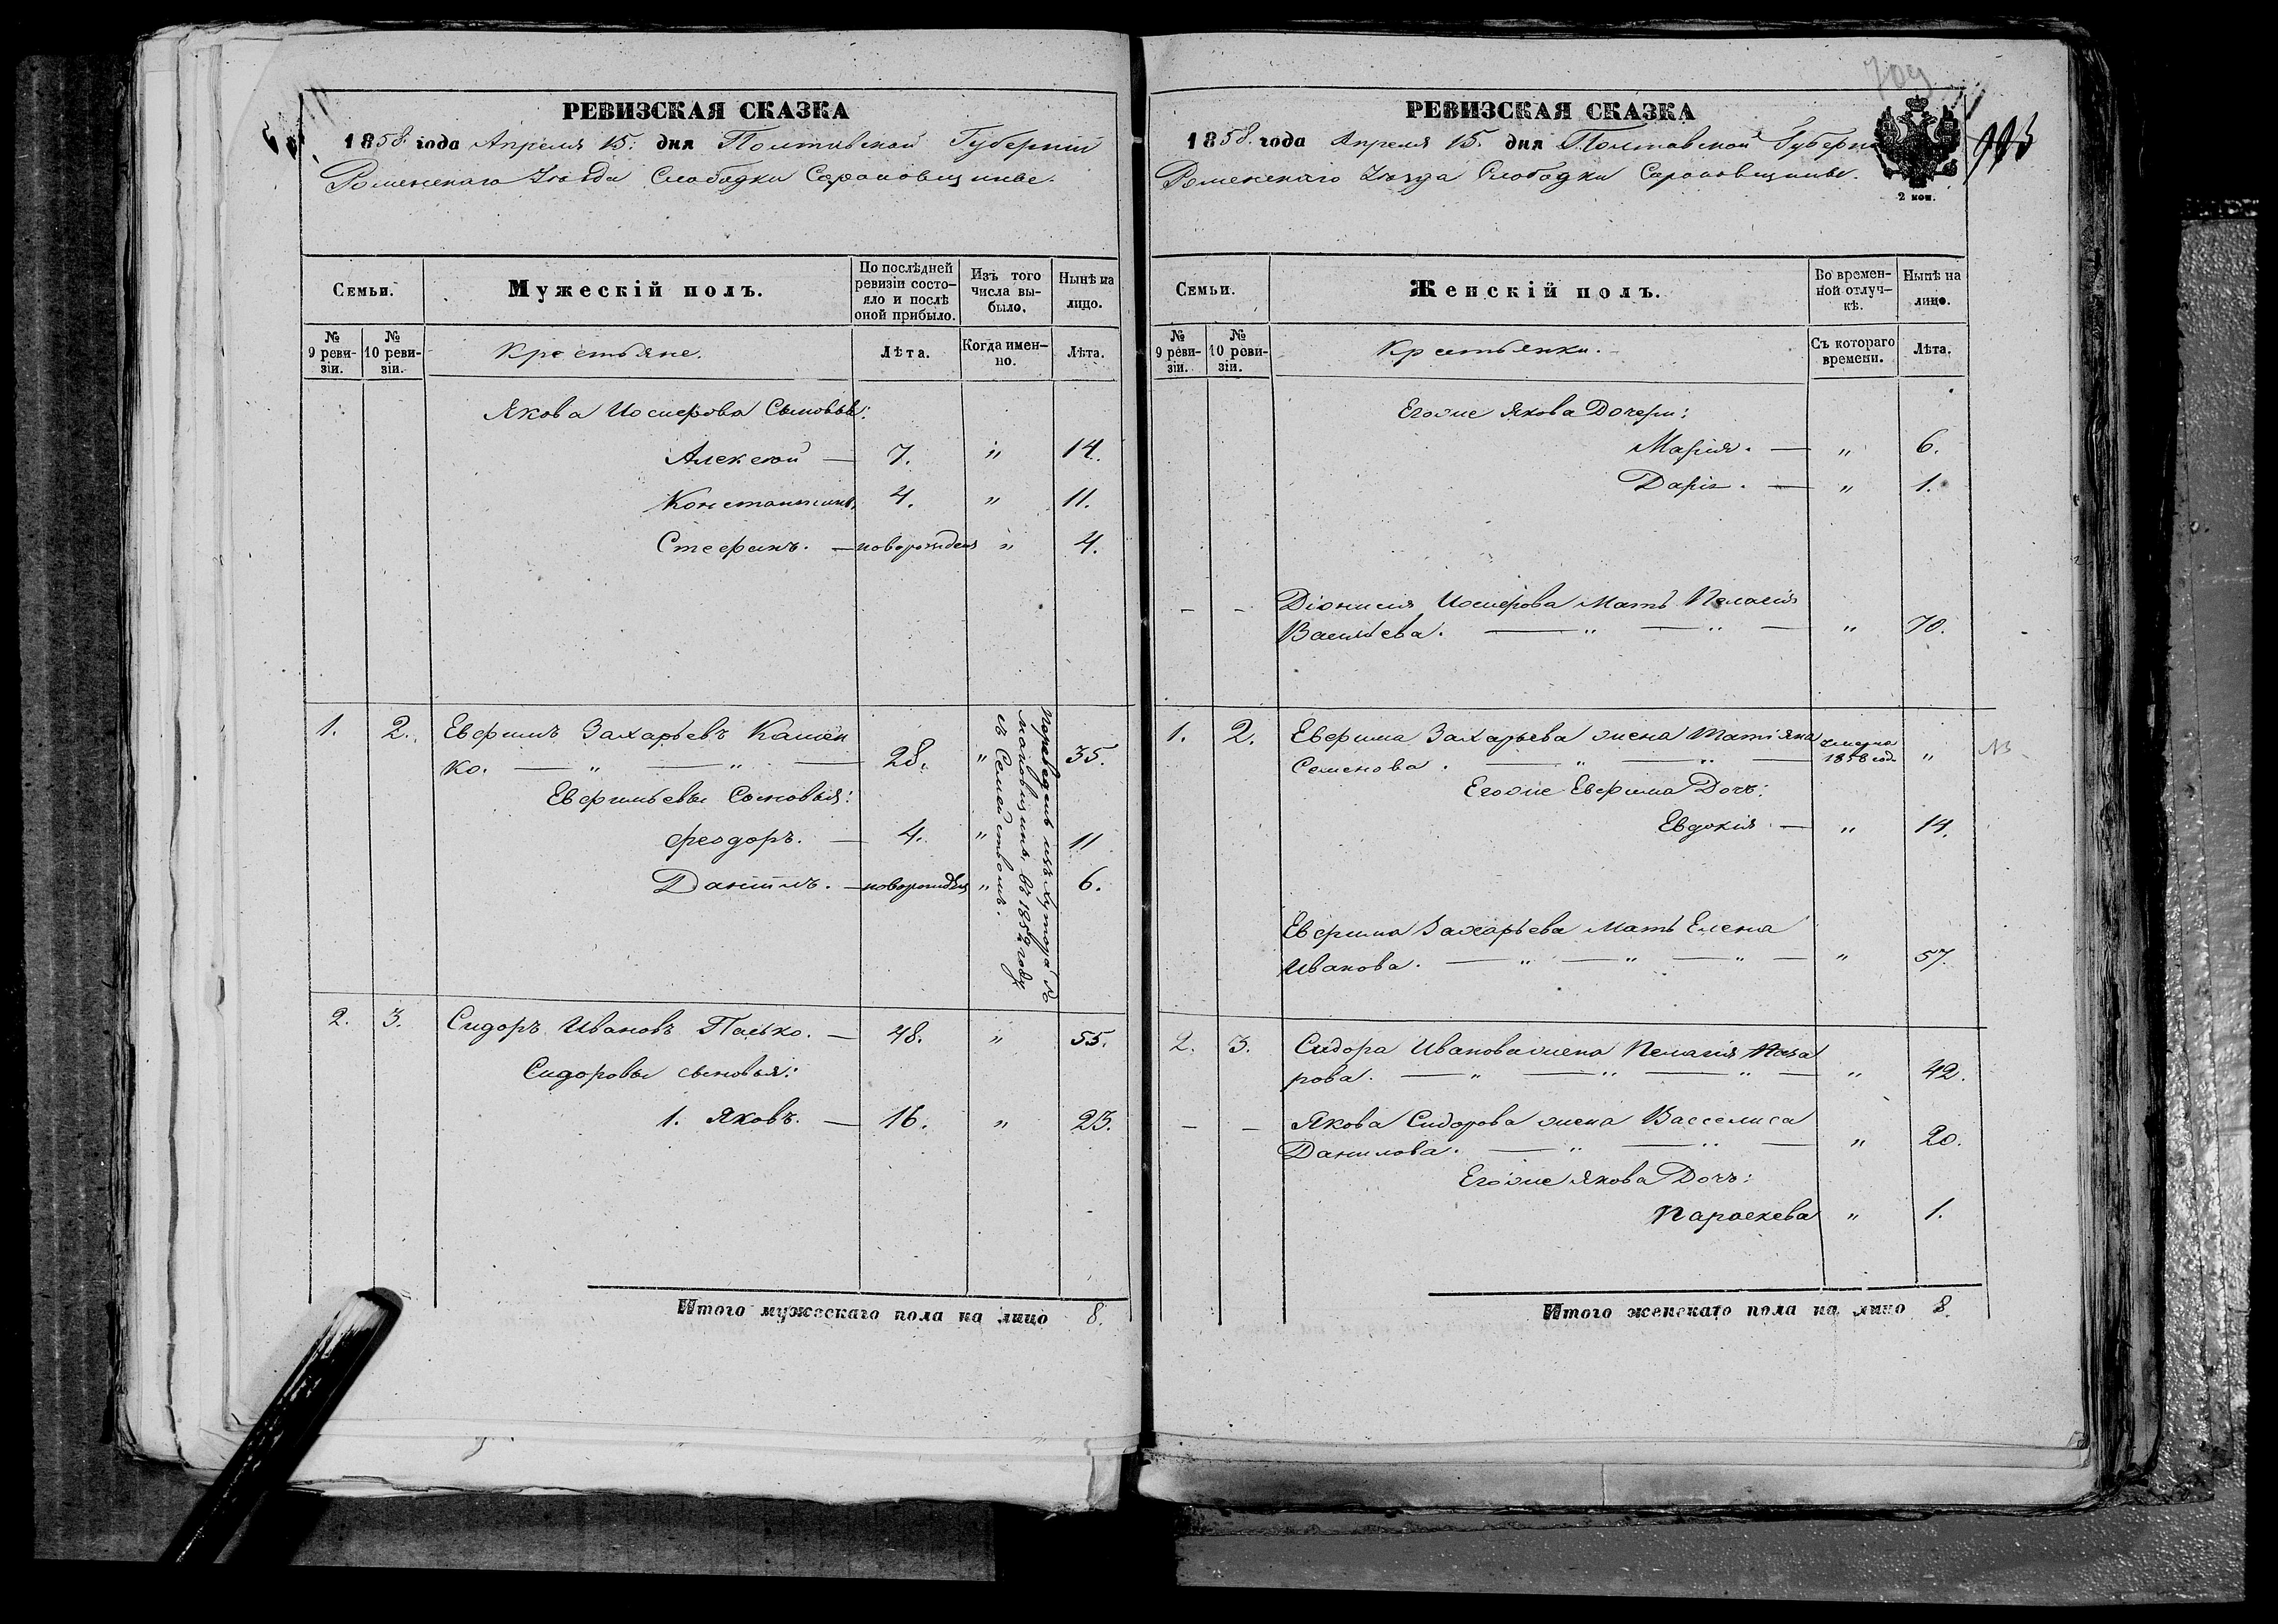 РЕВИЗСКАЯ СКАЗКА
1858 года Апреля 15. дня Полтавской Губерніи
Роменскаго Уѣзда Слободки Сароновщины.
Семьи.
Мужескій полъ.
По послѣдней ревизіи состояло и послѣ оной прибыло.
Изъ того числа выбыло.
Нынѣ на лицо.
№ 9 ревизіи.
№ 10 ревизіи.
Крестьяне.
Лѣта.
Когда именно.
Лѣта.
Якова Иосифова Сыновья:
Алексей — 7. " 14.
Константинъ, 4. " 11.
Стефанъ. — новорожден " 4.
1. 2. Евфимъ Захарьевъ Камен
ко. — " — " — 28. " 35.
Евфимьевы Сыновья:
Феодоръ. — 4. " 11
Даніилъ. — новорожден " 6.
Переведенъ изъ хутора
въ 1852 году
съ Семействомъ.
2. 3. Сидоръ Ивановъ Пасько. — 48. " 55.
Сидоровы сыновья:
1. Яковъ. — 16. " 23.
Итого мужескаго пола на лицо 8.
709
РЕВИЗСКАЯ СКАЗКА
1858. года Апреля 15. дня Полтавской Губерн
Роменскаго Уѣзда Слободки Сароновщины.
2 коп.
Семьи.
Женскій полъ.
Во временной отлучкѣ.
Нынѣ на лицо.
№ 9 ревизіи.
№ 10 ревизіи.
Крестьянки.
Съ котораго времени.
Лѣта.
Егоже Якова Дочери:
Марія. — " 6.
Дарія. — " 1.
- - Діонисія Иосифова Мать Пелагія
Васильева. — " — " — " 70.
1. 2. Евфима Захарьева жена Татіяна
Семенова. — " — " — 1858 год. "
Егоже Евфима Дочь:
Евдокія — " 14.
Евфима Захарьева Мать Елена
Иванова. — " — " — " — " 57.
2. 3. Сидора Иванова жена Пелагія Наза
рова. — " — " — " — " 42.
- - Якова Сидорова жена Васселиса
Данилова. — " — " — " 20.
Егоже Якова Дочь:
Параскева " 1.
Итого женскаго пола на лицо 8.